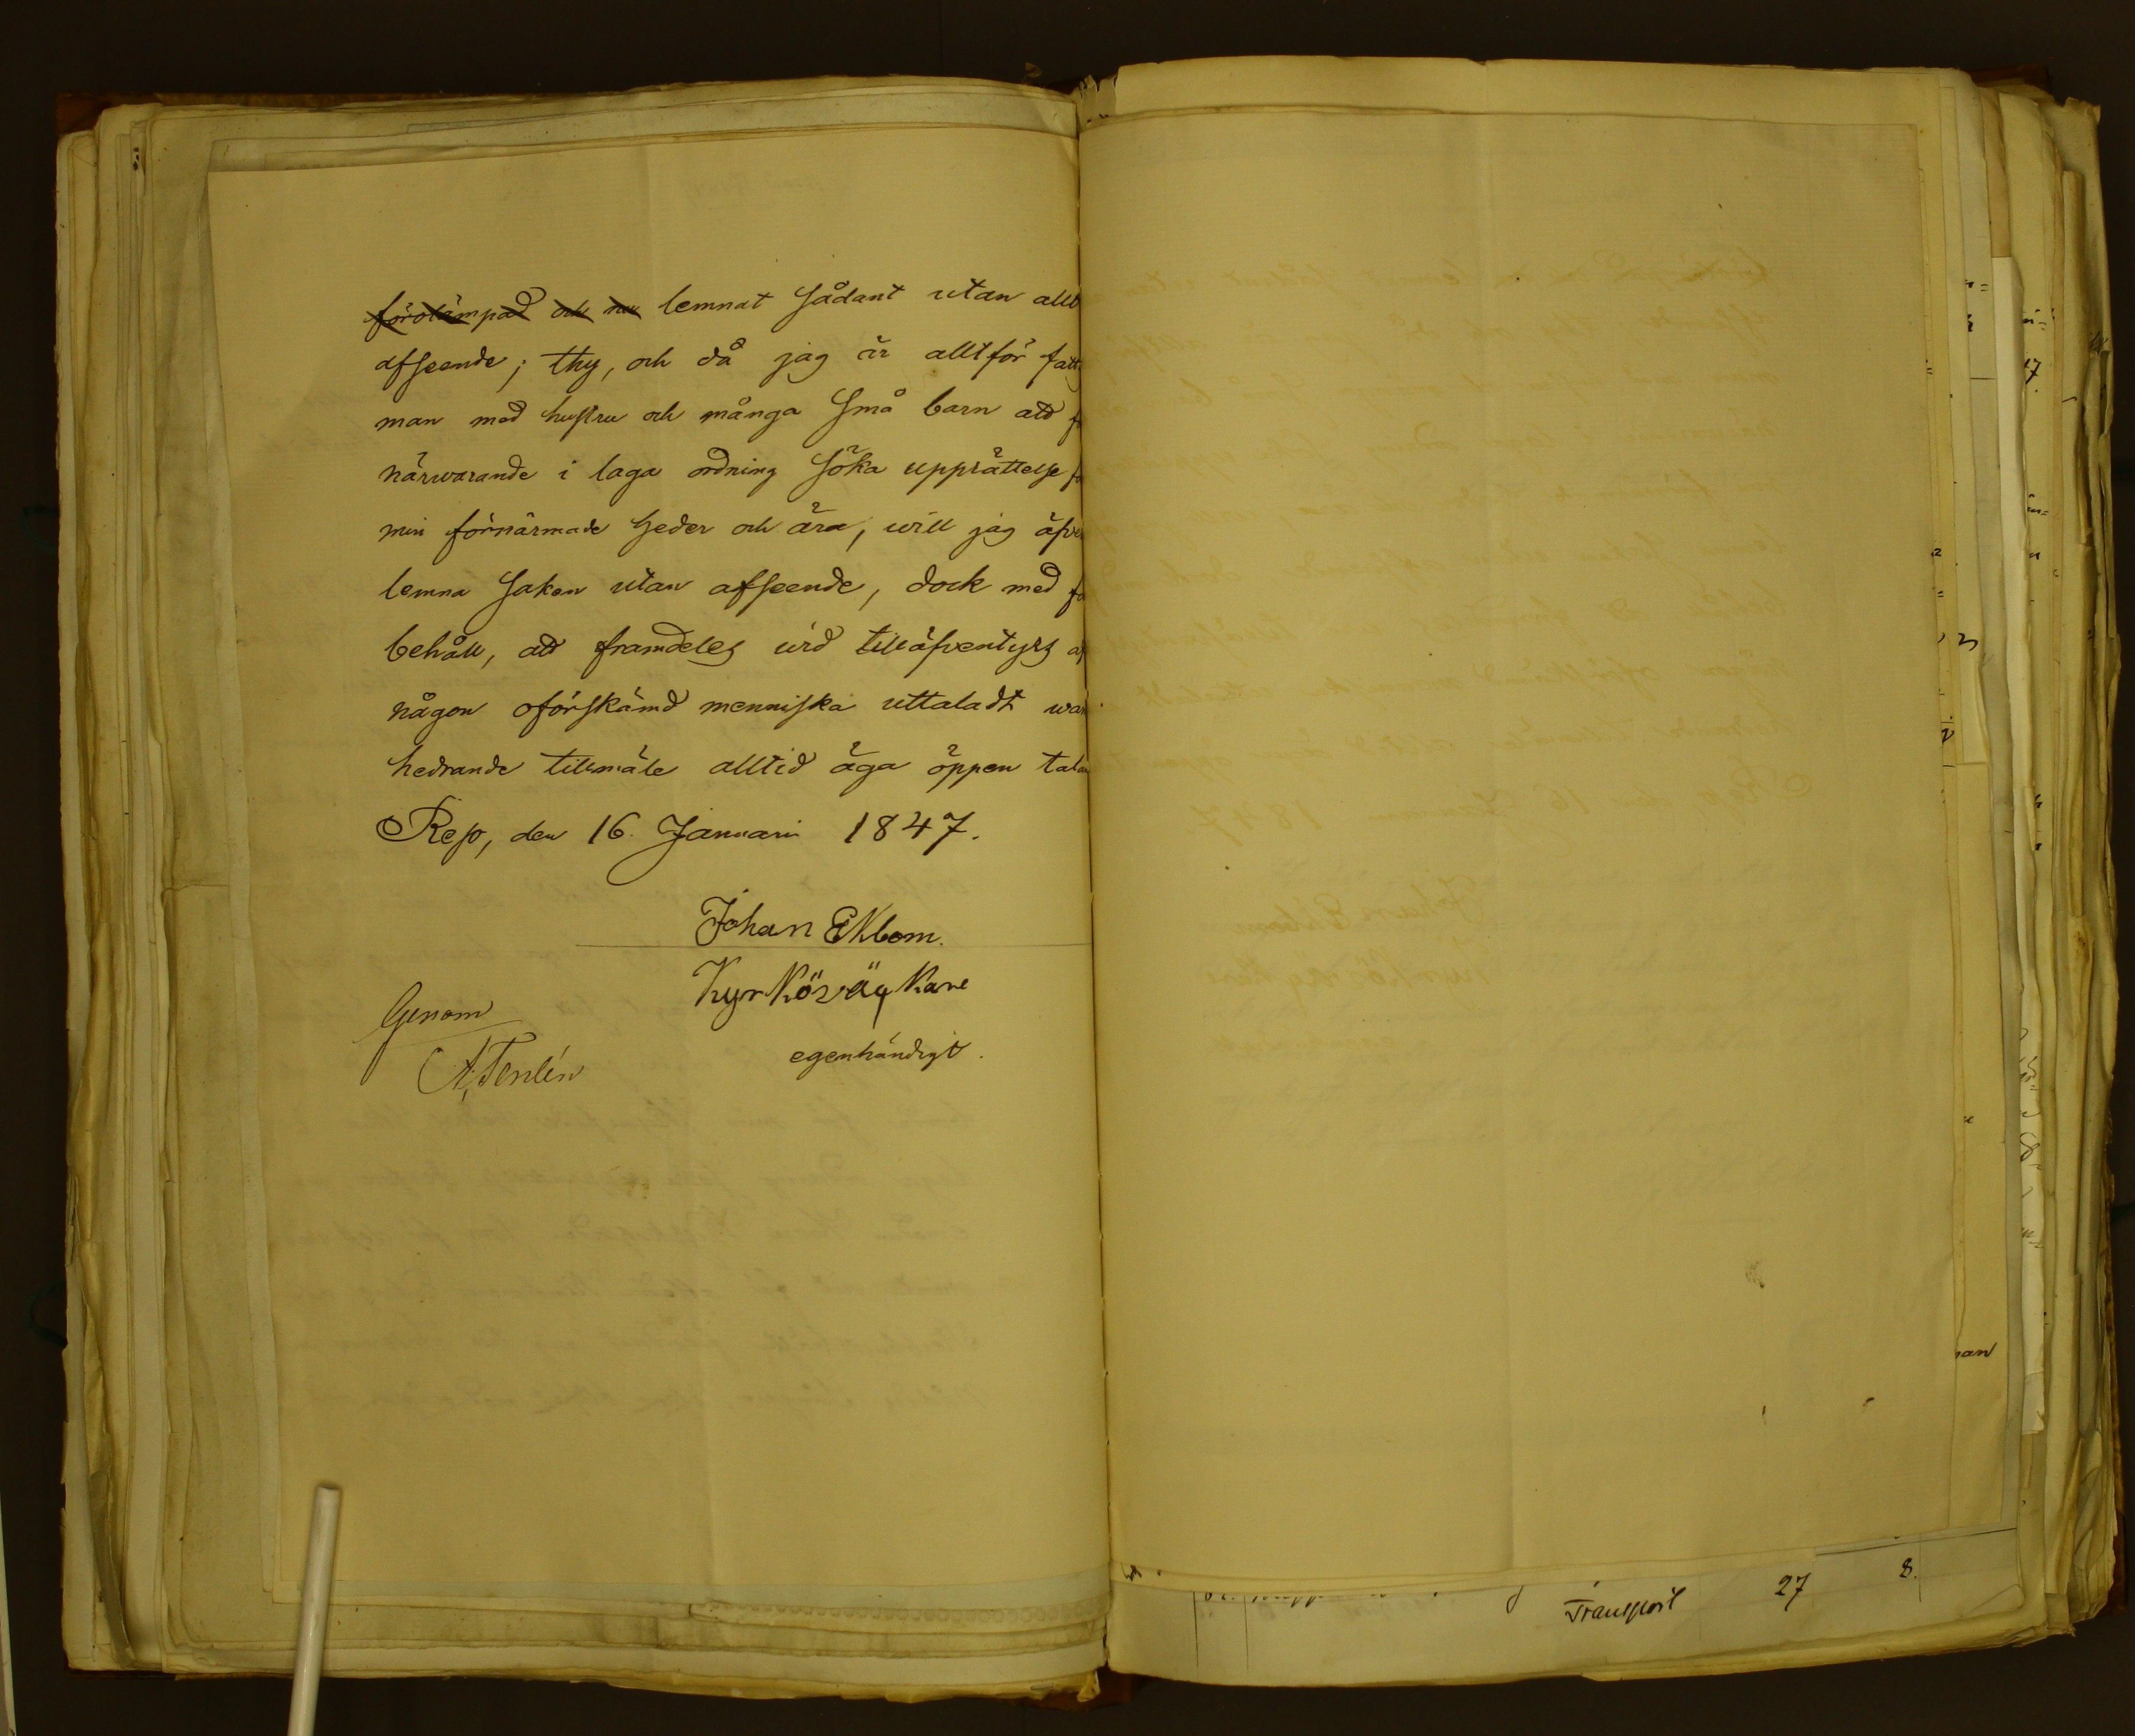 förolämpad och nu lemnat sådant utan allt
afseende; thy, och då jag är alltför fatti
man med hustru och många små barn att f
närwarande i laga ordning söka upprättelse fö
min förnärmade heder och ära, will jag äfve
lemna saken utan afseende, dock med fö
behåll, att framdeles wid tilläfventyrs af
någon oförskämd menniska uttaladt wan
hedrande tillmäle alltid äga öppen tala
Reso, den 16. Januari 1847.
Johan Ekbom.
Kyrkoväqkare
egenhändigt.
Genom
A. Tenlén
Transport 27 8.